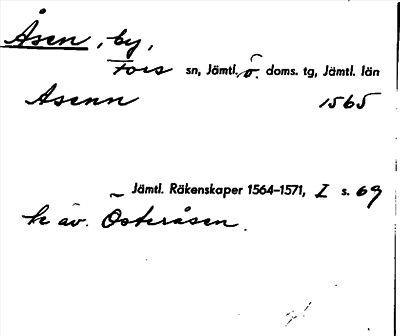 Åsen, by,
Fors sn, Jämtl. ö. doms. tg, Jämtl. län
Asenn 1565
Jämtl. Räkenskaper 1564–1571, I s. 69
äv. Österåsen.